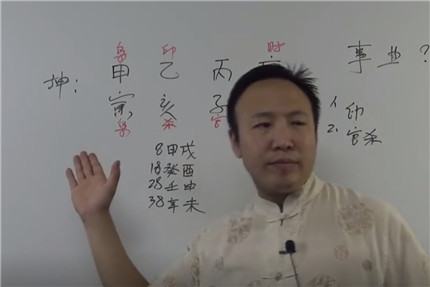 枭 印 财
坤: 甲 乙 丙 事业?
寅 亥 子
枭 杀 官
1. 印
2. 官杀
8甲戌
18癸酉
28壬申
38辛未